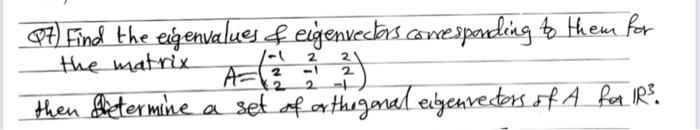 Q7) Find the eigenvalues & eigenvectors corresponding to them for
the matrix A = (-1 2 2
2 -1 2
2 2 -1)
then determine a set of orthogonal eigenvectors of A for IR³.